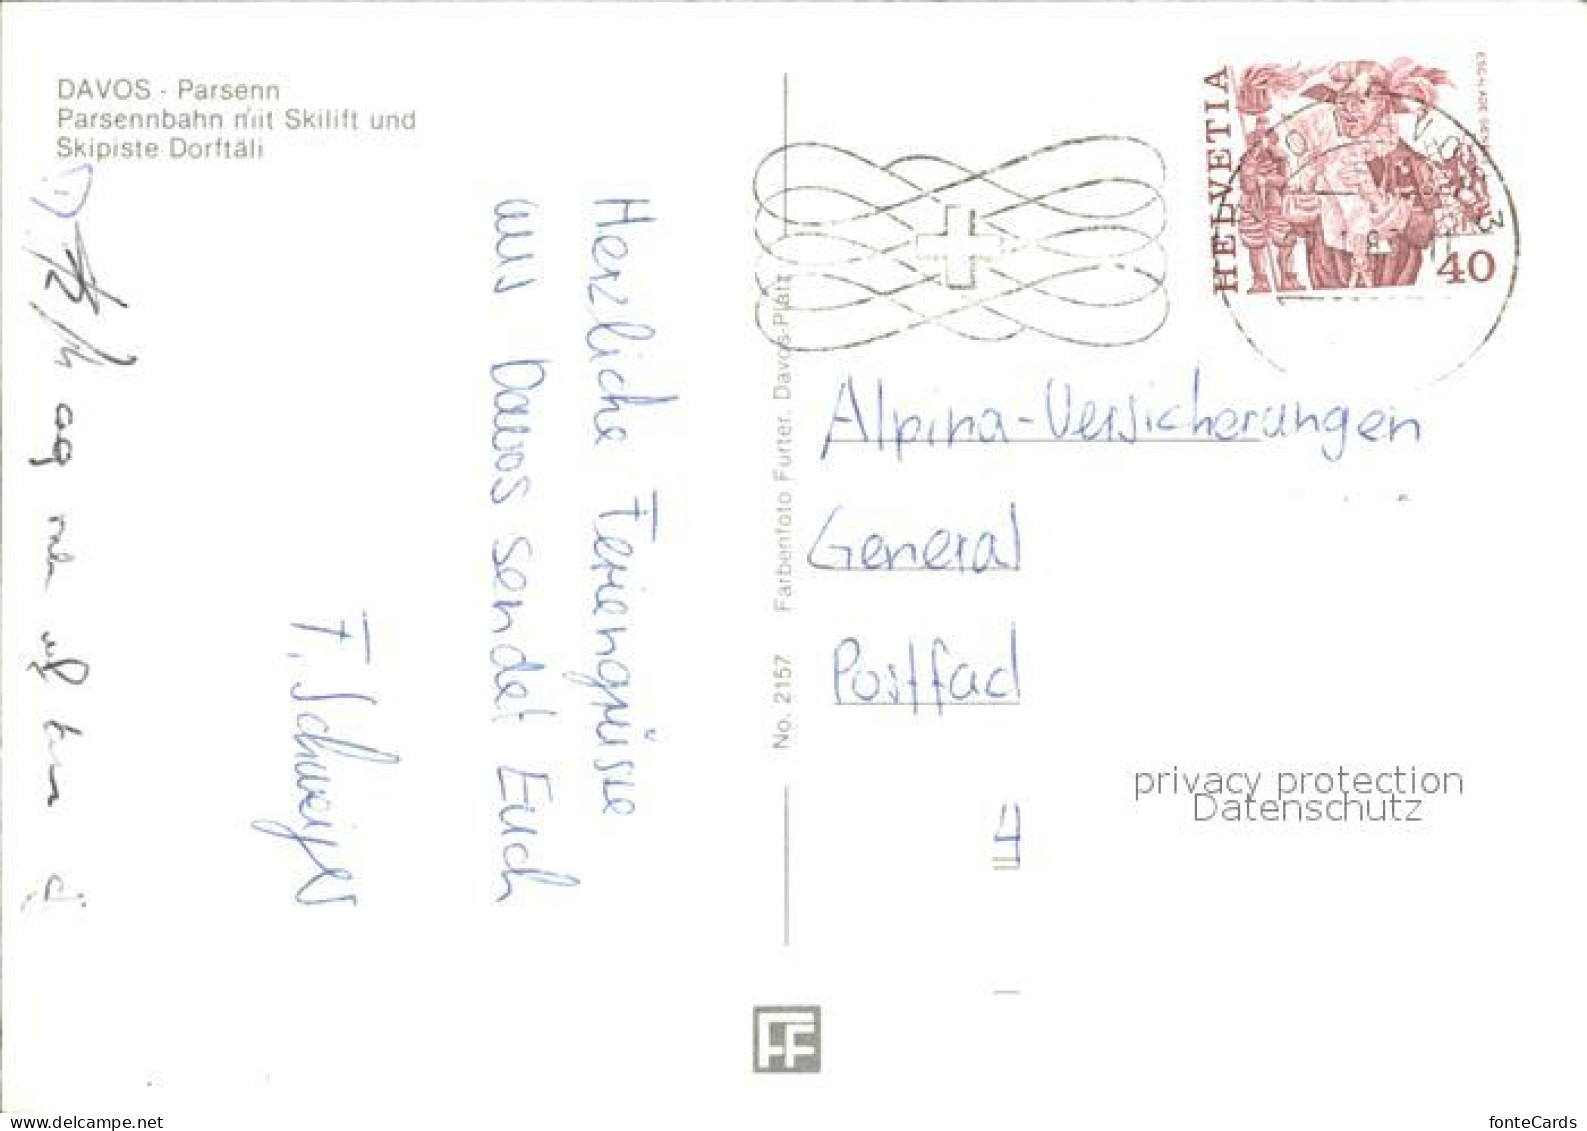 DAVOS - Parsenn
Parsennbahn mit Skilift und
Skipiste Dorftäli
Herzliche Feriengrüsse
aus Davos sendet Euch
No. 2157 Farbenfoto Furter, Davos-Platz
HELVETIA
40
Alpina-Versicherungen
General
Postfad
4
privacy protection
Datenschutz
FF
www.delcampe.net
fonteCards